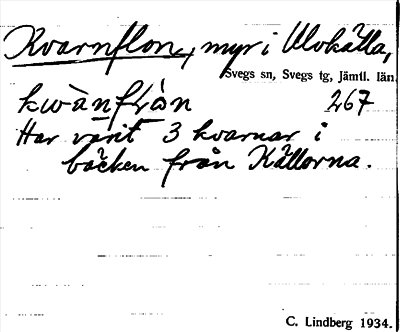 Kvarnflon, myr i Ulvkälla,
Svegs sn, Svegs tg, Jämtl. län.
267
Har varit 3 kvarnar i
bäcken från Källorna.
C. Lindberg 1934.